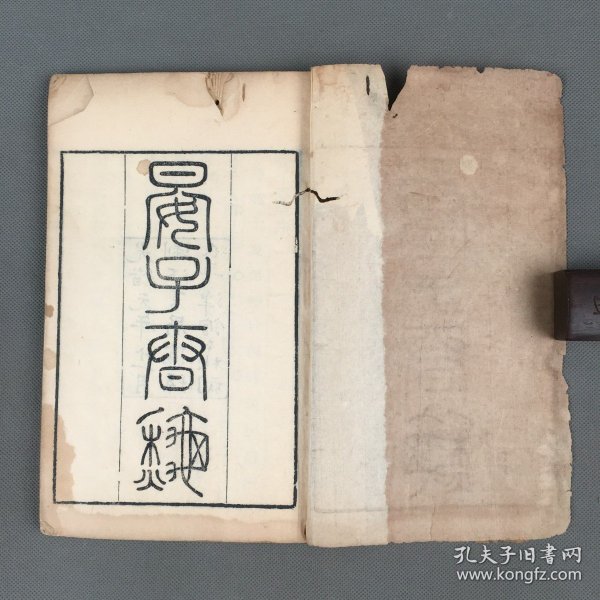 晏子春秋
孔夫子旧书网
www.kongfz.com